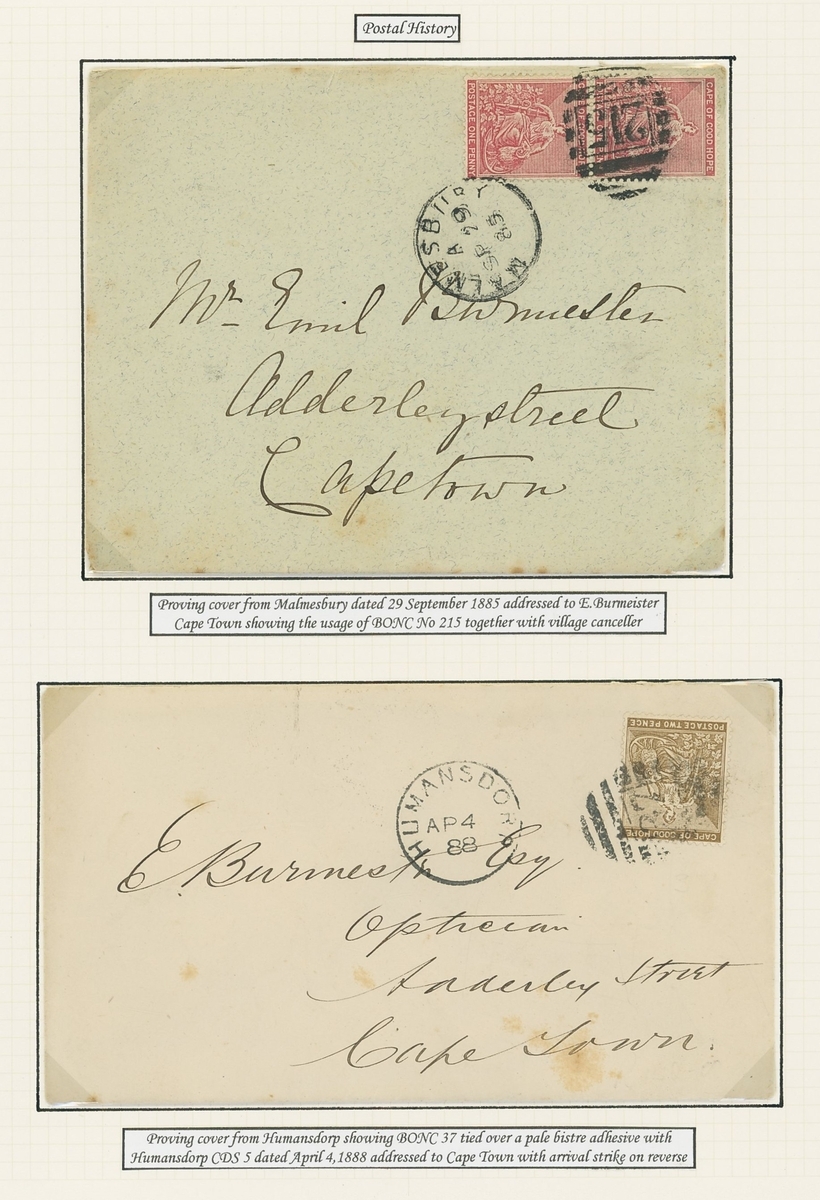 Postal History
POSTAGE ONE PENNY
CAPE OF GOOD HOPE
215
MALMESBURY
A
SP 29
85
Mr Emil Burmester
Adderleystreet
Capetown
Proving cover from Malmesbury dated 29 September 1885 addressed to E.Burmeister
Cape Town showing the usage of BONC No 215 together with village canceller
POSTAGE TWO PENCE
CAPE OF GOOD HOPE
HUMANSDORP
AP 4
88
E. Burmester Esq.
Optician
Adderley Street
Cape Town.
Proving cover from Humansdorp showing BONC 37 tied over a pale bistre adhesive with
Humansdorp CDS 5 dated April 4,1888 addressed to Cape Town with arrival strike on reverse